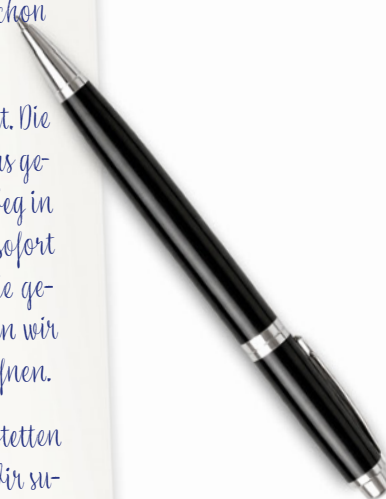 chon
t. Die
as ge-
eg in
sofort
ie ge-
n wir
fnen.
tetten
ir su-